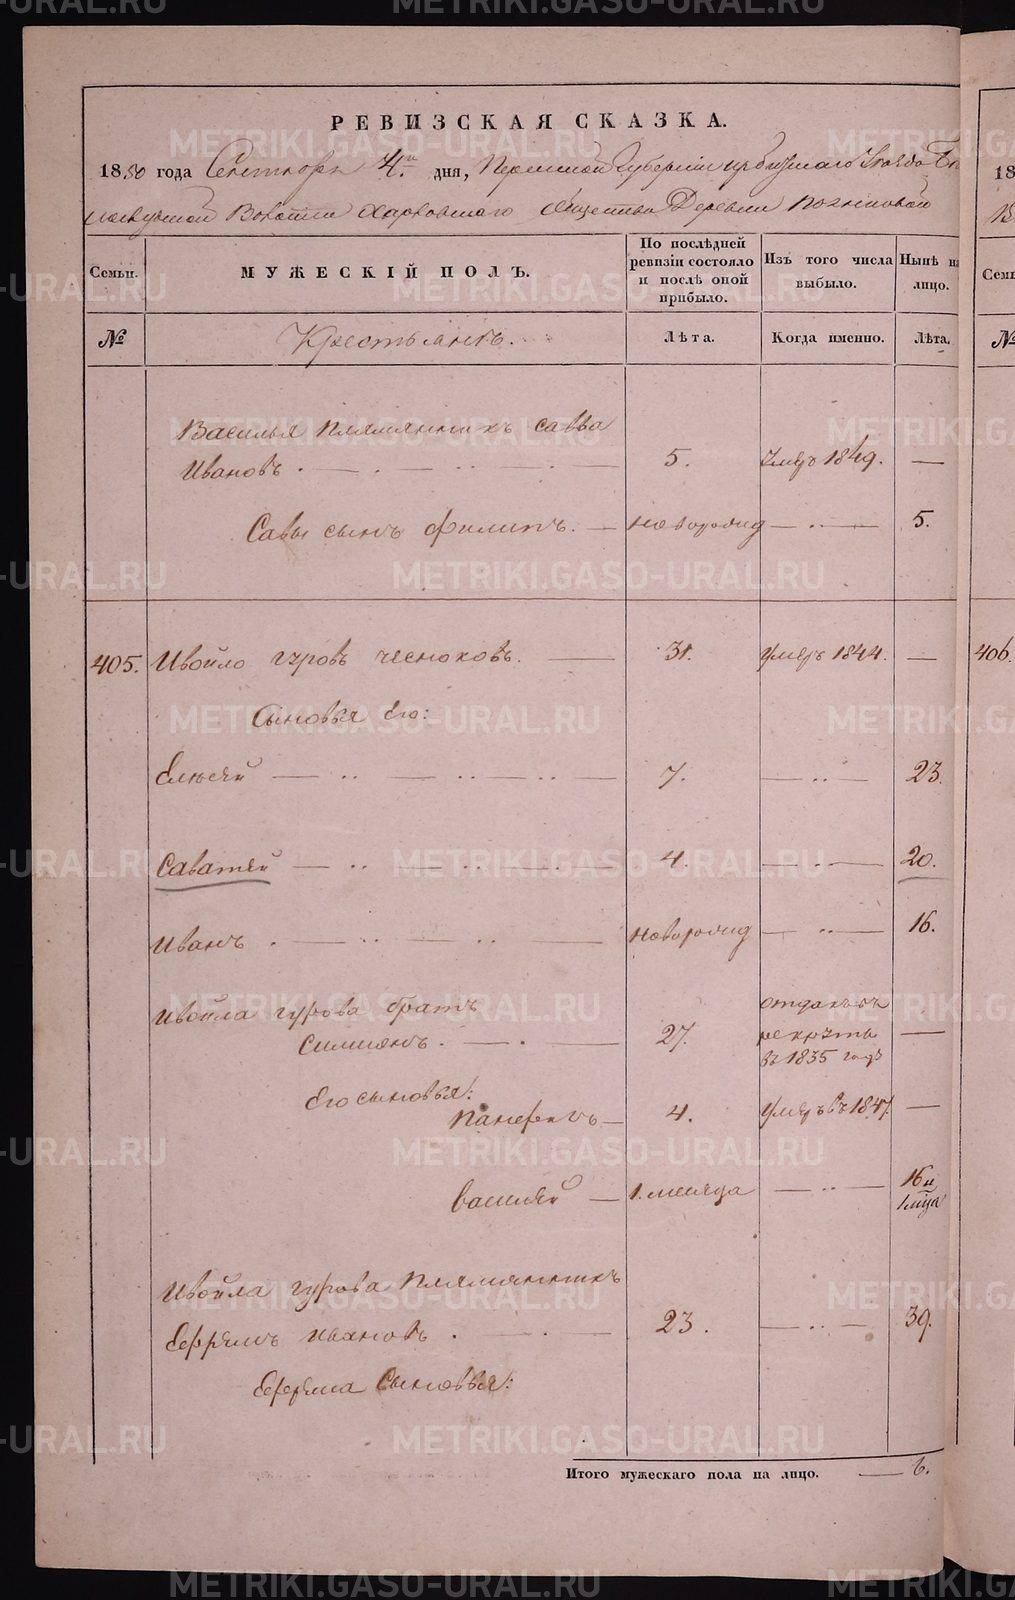 РЕВИЗСКАЯ СКАЗКА.
1850 года Сентября 4го дня, Пермской Губернiи Ирбитскаго Уезда
Волости Харловскаго общества Деревни
Семьи.
МУЖЕСКIЙ ПОЛЪ.
По послѣдней ревизiи состояло и послѣ оной прибыло.
Изъ того числа выбыло.
Нынѣ на лицо.
№
Крестьянъ.
Лѣта.
Когда именно.
Лѣта.
Василья племянникъ савва
Ивановъ. 5. умеръ 1849. —
Савы сынъ филипъ. — новорожд — 5.
405. Ивойло гуровъ чесноковъ. — 31. умеръ 1844. —
Сыновья его:
Елисей — 7. — 23.
Саватей — 4. — 20.
Иванъ. — новорожд — 16.
Ивойла гурова братъ
Симионъ. — 27. отданъ въ рекруты въ 1835 годѣ —
Его сыновья:
Панфилъ — 4. умеръ въ 1847. —
василей — 1. месяца — 16 и 1 мца
Ивойла гурова племянникъ
Ефремъ ивановъ. — 23. — 39.
Ефрема Сыновья:
Итого мужескаго пола на лицо. — 6.
18
Семьи
№
406.
METRIKI.GASO-URAL.RU